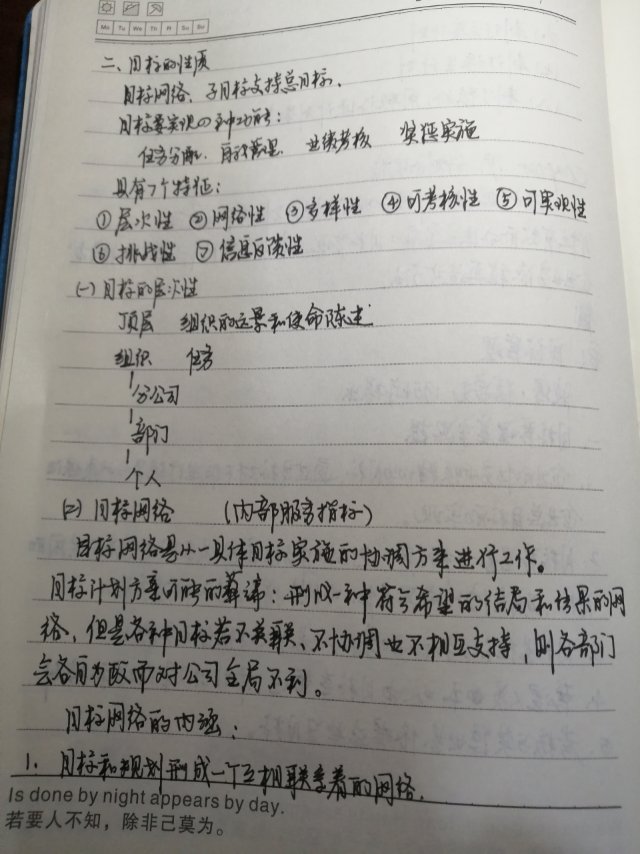 Mo Tu We Th Fr Sa Su
二、目标的性质
目标网络、子目标支持总目标.
目标要实现四种功能:
任务分配. 自我管理. 业绩考核 奖惩实施
具有7个特征:
①层次性 ②网络性 ③多样性 ④可考核性 ⑤可实次性
⑥挑战性 ⑦信息反馈性
(一)目标的层次性
顶层 组织的远景和使命陈述
组织 任务
分公司
部门
个人
(2) 目标网络 (内部服务指标)
目标网络是从一具体目标实施的协调方来进行工作。
目标计划方案的: 形成一种符合希望的结局和结果的网
络, 但是各种目标若不关联、不协调也不相互支持, 则各部门
会各自为政而对公司全局不利。
目标网络的内涵:
1. 目标和规划形成一个互相联系着的网络.
Is done by night appears by day.
若要人不知，除非己莫为。